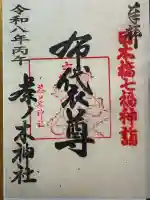 奉拝
日本橋七福神詣
布袋尊
茶ノ木神社
令和八年丙午